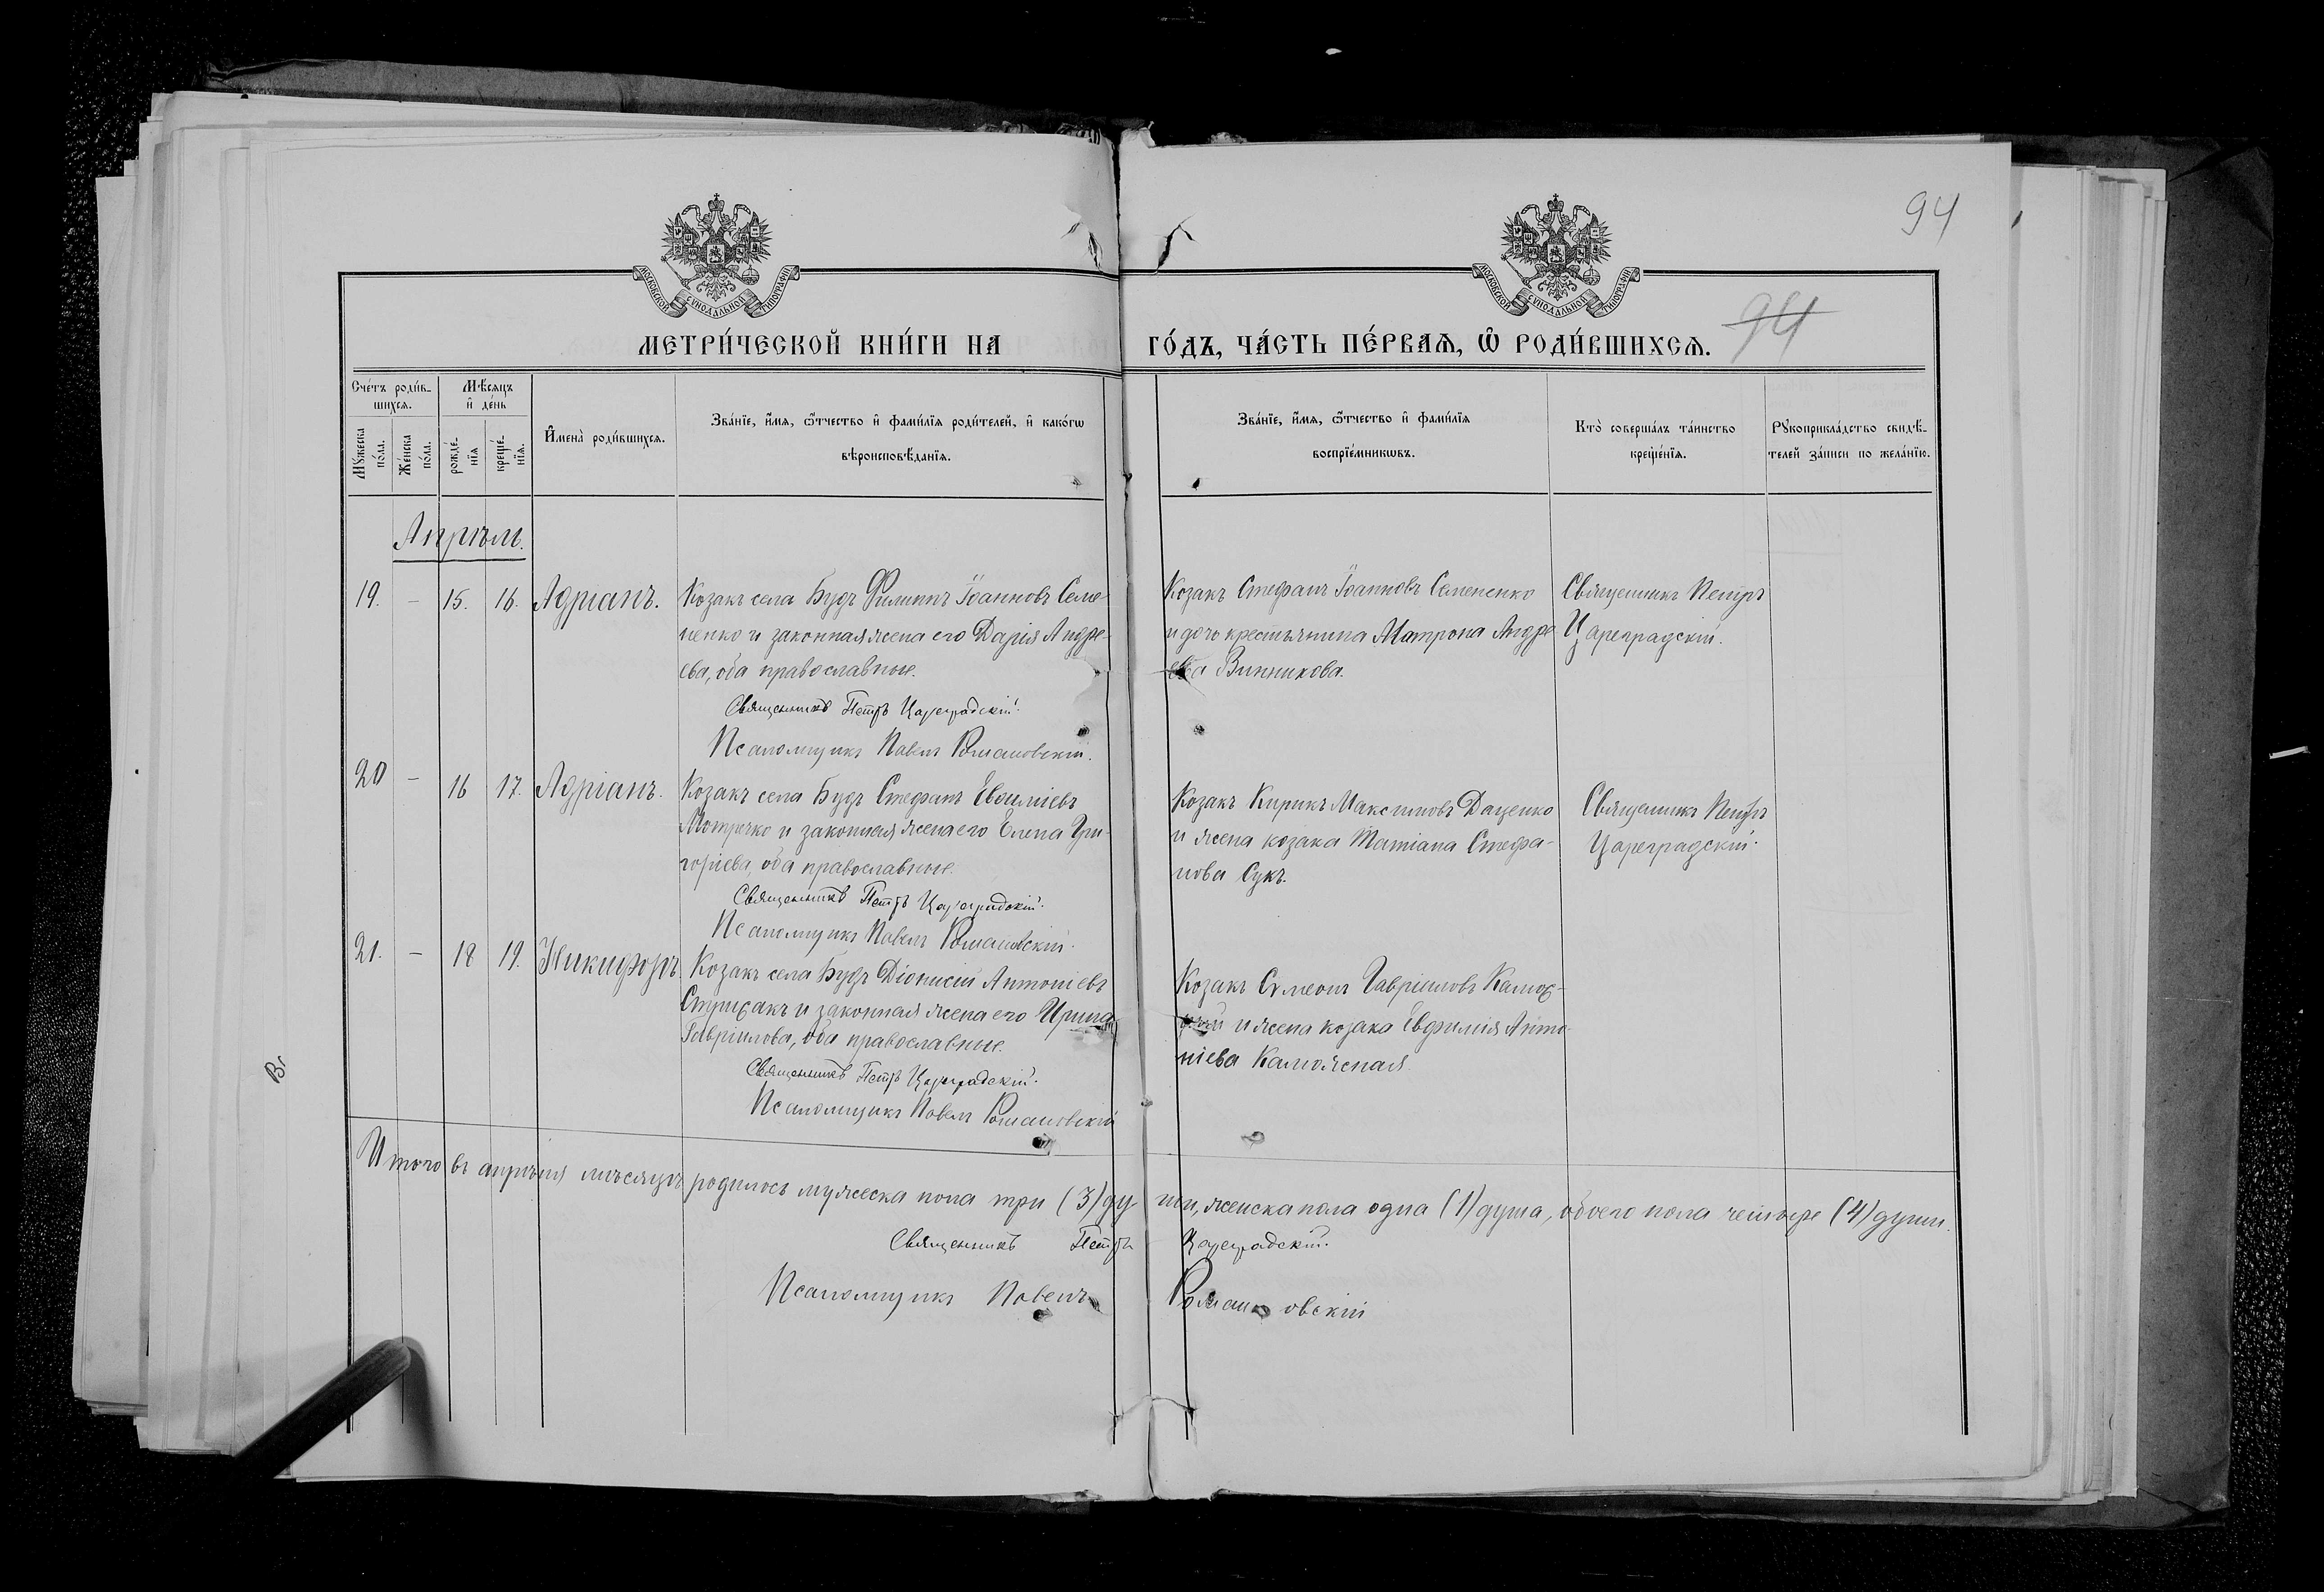 94
МОСКОВСКОЙ СѴНОДАЛЬНОЙ ТИПОГРАФІИ
МОСКОВСКОЙ СѴНОДАЛЬНОЙ ТИПОГРАФІИ
94
МЕТРИ́ЧЕСКОЙ КНИ́ГИ НА ГО́ДЪ, ЧА́СТЬ ПЕ́РВАѦ, Ѡ҆ РОДИ́ВШИХСѦ.
Сче́тъ роди́в-
шихсѧ.
Мѣ́сяцъ
и҆ де́нь
Мꙋ́жеска
по́ла.
Же́нска
по́ла.
рожде́-
нїѧ
креще́-
нїѧ.
И҆мена̀ роди́вшихсѧ.
Зва́нїе, и҆́мѧ, ѻ҆́тчество и҆ фами́лїѧ роди́телей, и҆ како́гѡ
вѣроисповѣ́данїѧ.
Зва́нїе, и҆́мѧ, ѻ҆́тчество и҆ фами́лїѧ
воспрїе́мникѡвъ.
Кто̀ соверша́лъ та́инство
креще́нїѧ.
Рꙋкоприкла́дство свидѣ́-
телей за́писи по жела́нїю.
Апрѣль.
19. — 15. 16. Адріанъ.
Козакъ села Будъ Филиппъ Іоанновъ Семе-
ненко и законная жена его Дарія Андре-
ева, оба православные.
Священникъ Петръ Цареградскій.
Псаломщикъ Павелъ Романовскій.
Козакъ Стефанъ Іоанновъ Семененко
и дочь крестьянина Матрона Андре-
ева Винникова.
Священникъ Петръ
Цареградскій.
20 — 16 17. Адріанъ.
Козакъ села Будъ Стефанъ Евфиміевъ
и законная жена его Елена Гри-
горіева, оба православные.
Священникъ Петръ Цареградскій.
Псаломщикъ Павелъ Романовскій.
Козакъ Кирикъ Максимовъ Даценко
и жена козака Татіана Стефа-
нова Сукъ.
Священникъ Петръ
Цареградскій.
21. — 18 19. Никифоръ.
Козакъ села Будъ Діонисій Антоніевъ
и законная жена его Ирина
Гавріилова, оба православные.
Священникъ Петръ Цареградскій.
Псаломщикъ Павелъ Романовскій
Козакъ Сѵмеонъ Гавріиловъ
и жена козака Евфимія Анто-
ніева Каможсная
Вг
Итого въ апрѣлѣ мѣсяцѣ родилось мужеска пола три (3) ду ши, женска пола одна (1) душа, обоего пола четыре (4) души.
Священникъ Петръ Цареградскій.
Псаломщикъ Павелъ Романовскій